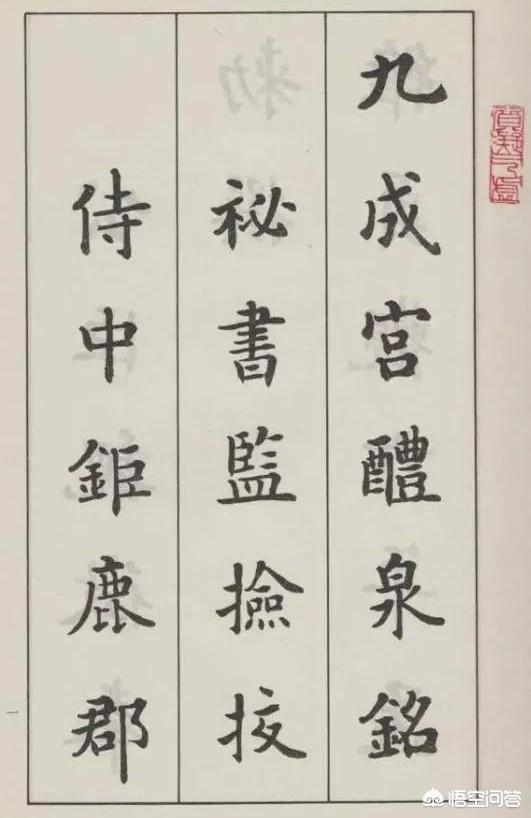 九成宮醴泉銘
祕書監撿挍
侍中鉅鹿郡
一
悟空问答